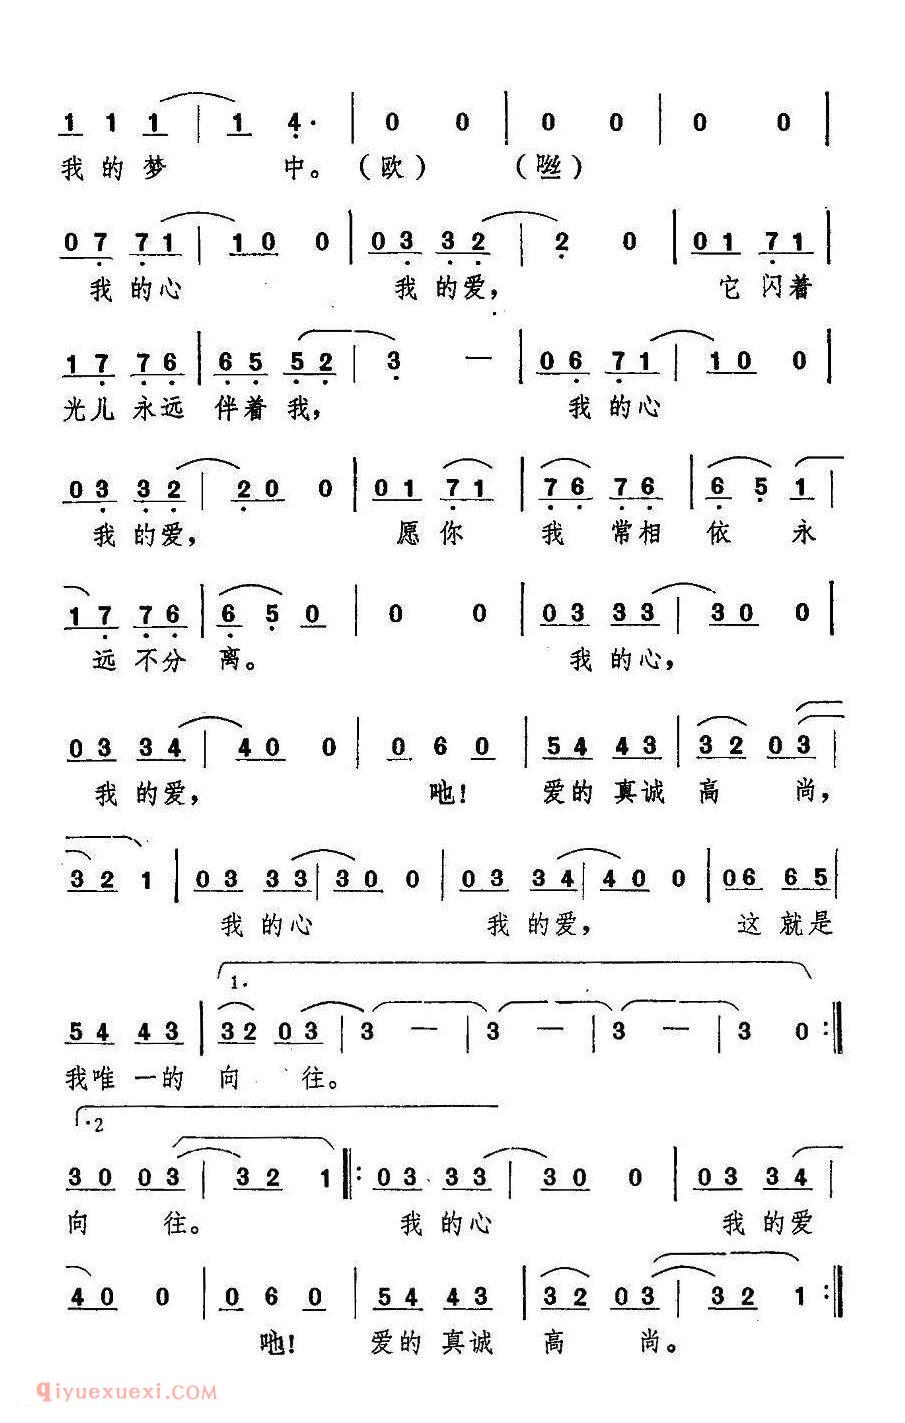 1 1 1 | 1 4· | 0 0 | 0 0 | 0 0 |
我的梦 中。（欧） （咝）
0 7 7 1 | 1 0 0 | 0 3 3 2 | 2 0 | 0 1 7 1 |
我的心 我的爱， 它闪着
1 7 7 6 | 6 5 5 2 | 3 — | 0 6 7 1 | 1 0 0 |
光儿永远伴着我， 我的心
0 3 3 2 | 2 0 0 | 0 1 7 1 | 7 6 7 6 | 6 5 1 |
我的爱， 愿你 我 常相 依 永
1 7 7 6 | 6 5 0 | 0 0 | 0 3 3 3 | 3 0 0 |
远不分 离。 我的心，
0 3 3 4 | 4 0 0 | 0 6 0 | 5 4 4 3 | 3 2 0 3 |
我的爱， 吔！ 爱的真诚 高 尚，
3 2 1 | 0 3 3 3 | 3 0 0 | 0 3 3 4 | 4 0 0 | 0 6 6 5 |
我的心 我的爱， 这就是
1.
5 4 4 3 | 3 2 0 3 | 3 — | 3 — | 3 — | 3 0 :‖
我唯一的 向 往。
2
3 0 0 3 | 3 2 1 ‖: 0 3 3 3 | 3 0 0 | 0 3 3 4 |
向 往。 我的心 我的爱
4 0 0 | 0 6 0 | 5 4 4 3 | 3 2 0 3 | 3 2 1 :‖
吔！ 爱的真诚 高 尚。
qiyuexuexi.COM